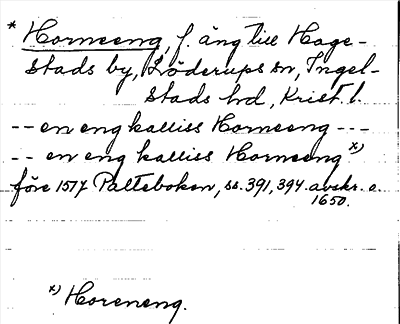 * Horneeng, f. äng till Hage-
stads by, Löderups sn, Ingel-
stads hd, Krist. l.
-- en eng kalliss Horneeng ---
-- en eng kalliss Horneeng x)
före 1517 Palteboken, ss. 391, 394 avskr. c.
1650.
x) Horeneng.